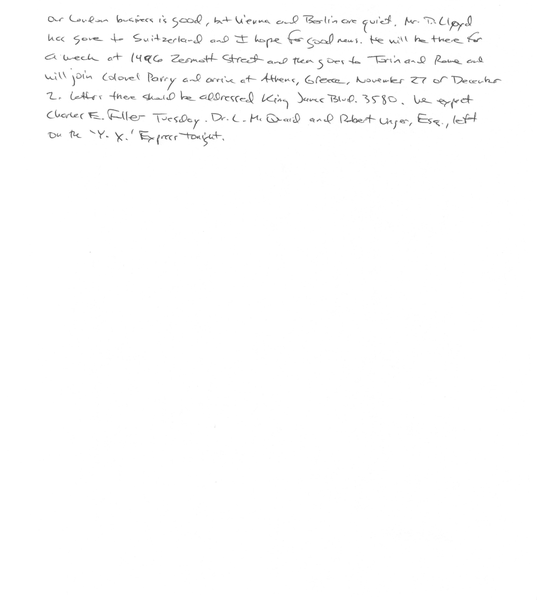 Our London business is good, but Vienna and Berlin are quiet. Mr. D. Lloyd
has gone to Switzerland and I hope for good news. He will be there for
a week at 1496 Zermott Street and then goes to Turin and Rome and
will join Colonel Parry and arrive at Athens, Greece, November 27 or December
2. Letters there should be addressed King James Blvd. 3580. We expect
Charles E. Fuller Tuesday. Dr. L. McQuaid and Robert Unger, Esq., left
on the 'Y. X.' Express tonight.